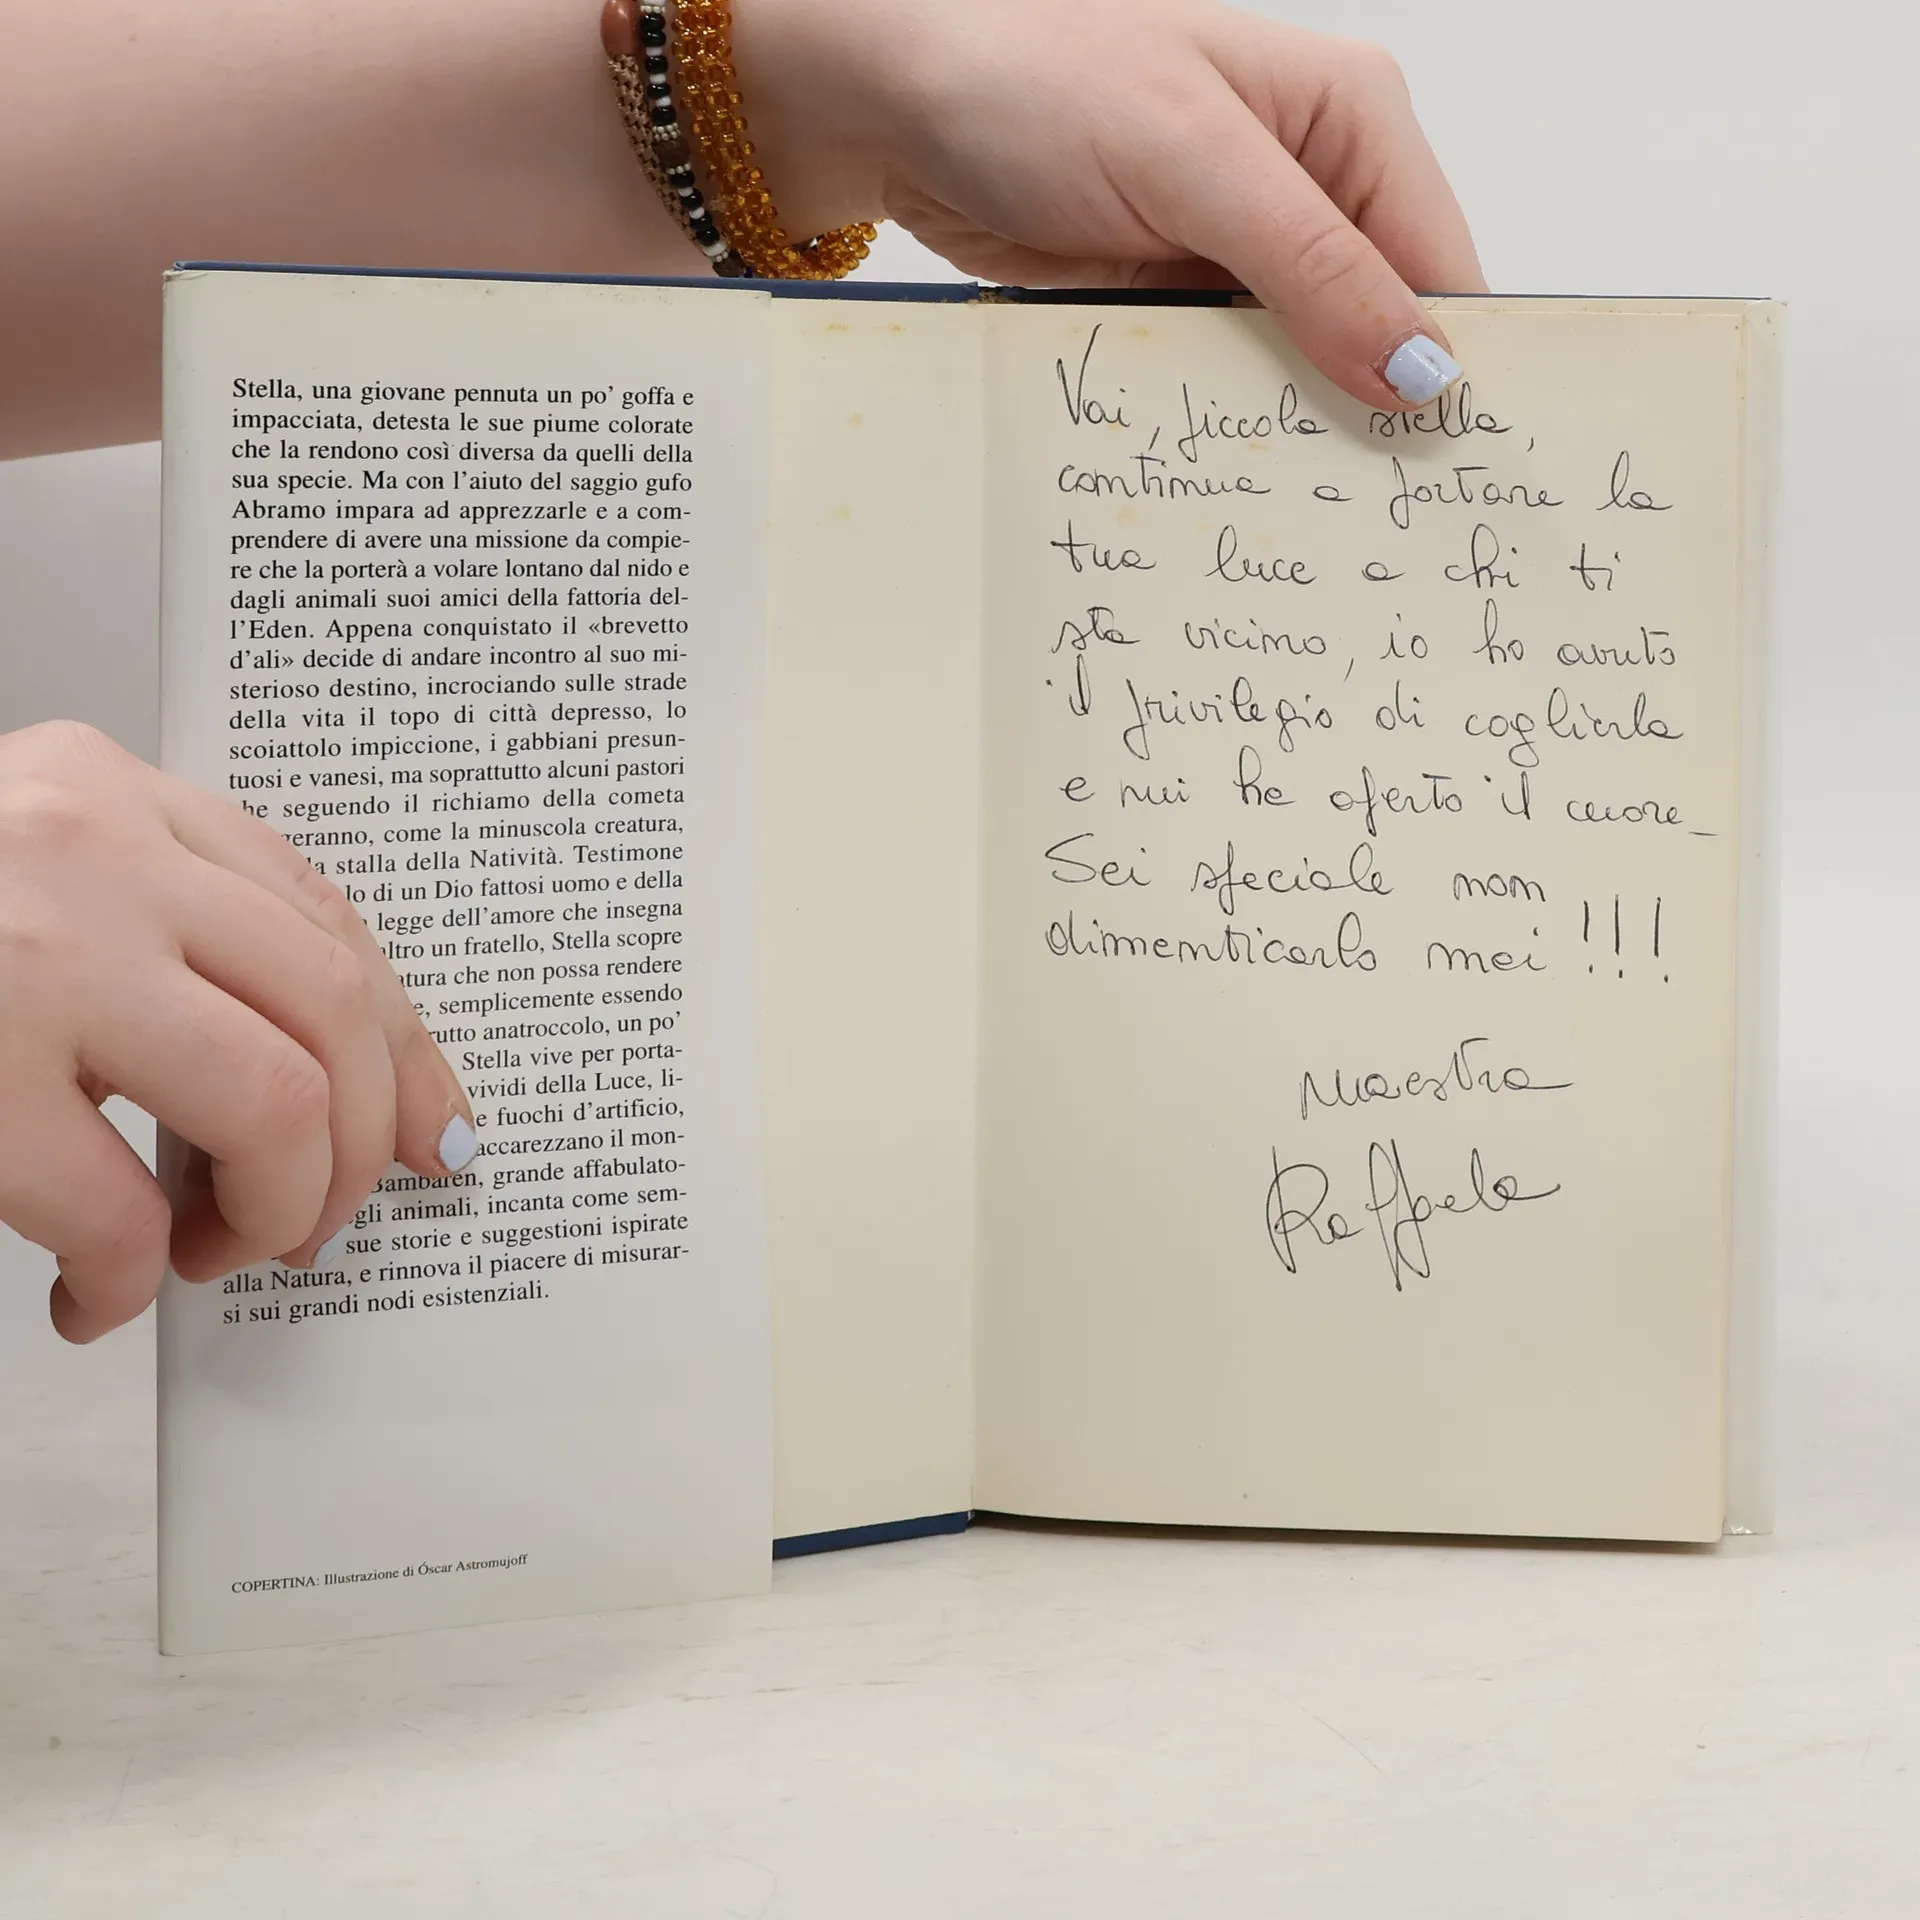 Stella, una giovane pennuta un po' goffa e
impacciata, detesta le sue piume colorate
che la rendono così diversa da quelli della
sua specie. Ma con l'aiuto del saggio gufo
Abramo impara ad apprezzarle e a com-
prendere di avere una missione da compie-
re che la porterà a volare lontano dal nido e
dagli animali suoi amici della fattoria del-
l'Eden. Appena conquistato il «brevetto
d'ali» decide di andare incontro al suo mi-
sterioso destino, incrociando sulle strade
della vita il topo di città depresso, lo
scoiattolo impiccione, i gabbiani presun-
tuosi e vanesi, ma soprattutto alcuni pastori
he seguendo il richiamo della cometa
geranno, come la minuscola creatura,
a stalla della Natività. Testimone
lo di un Dio fattosi uomo e della
legge dell'amore che insegna
altro un fratello, Stella scopre
atura che non possa rendere
e, semplicemente essendo
rutto anatroccolo, un po'
Stella vive per porta-
vividi della Luce, li-
e fuochi d'artificio,
accarezzano il mon-
Bambarén, grande affabulato-
gli animali, incanta come sem-
sue storie e suggestioni ispirate
alla Natura, e rinnova il piacere di misurar-
si sui grandi nodi esistenziali.
COPERTINA: Illustrazione di Óscar Astromujoff
Vai, piccola stella,
continua a portare la
tua luce a chi ti
sta vicino, io ho avuto
il privilegio di coglierla
e mi ha oferto il cuore_
Sei speciale non
dimenticarlo mai!!!
Maestra
Raffaela